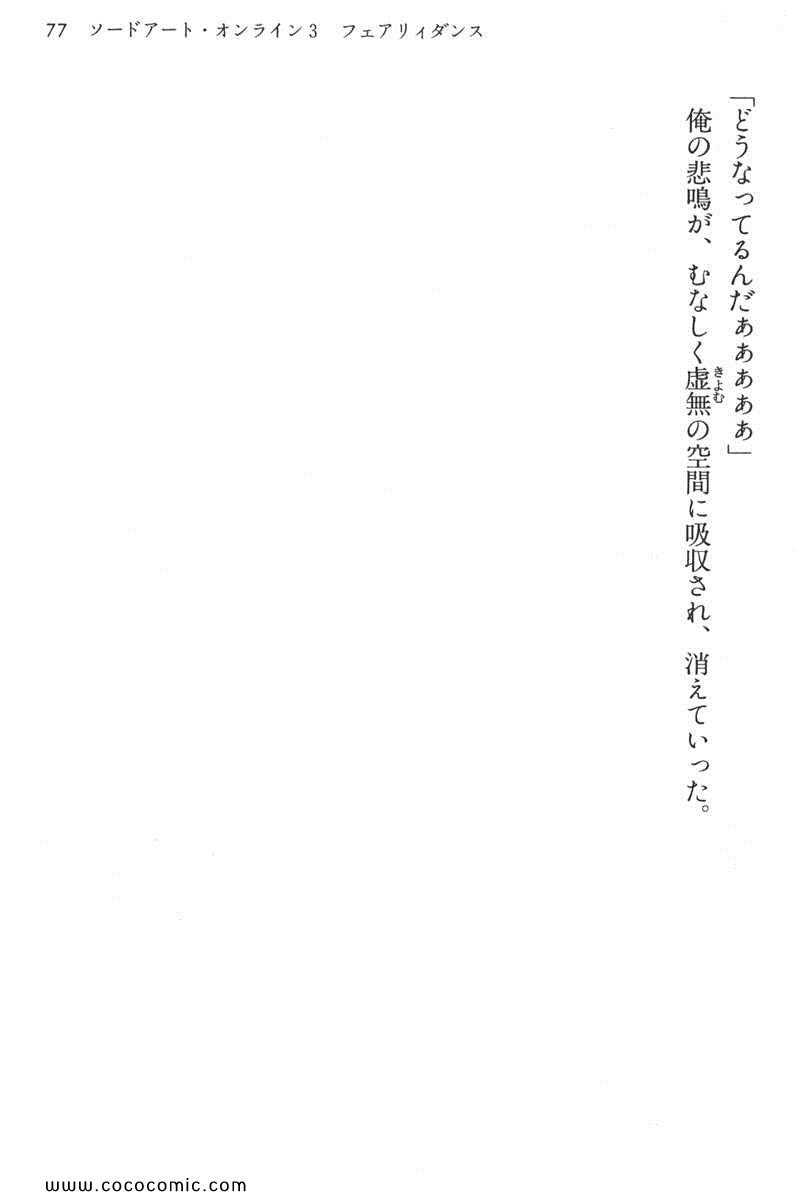 77 ソードアート・オンライン3 フェアリィダンス
「どうなってるんだぁぁぁぁぁ」
俺の悲鳴が、むなしく虚無の空間に吸収され、消えていった。
きよむ
www.cococomic.com